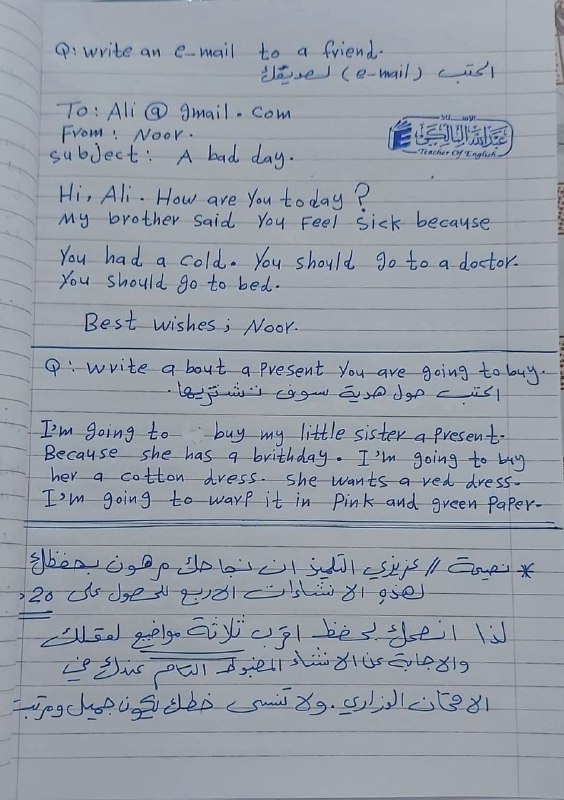 Q: write an e-mail to a friend.
اكتب (e-mail) لصديقك
To: Ali @ gmail. com
From: Noor.
subject: A bad day.
Teacher Of English
Hi, Ali. How are You today?
My brother said You Feel sick because
You had a cold. You should go to a doctor.
You should go to bed.
Best wishes; Noor.
Q: write a bout a Present You are going to buy.
اكتب حول هدية سوف تشتريها.
I'm going to buy my little sister a present.
Because she has a brithday. I'm going to buy
her a cotton dress. she wants a red dress.
I'm going to warp it in Pink and green Paper.
* نصيحة // عزيزي التلميذ ان نجاحك مرهون بحفظك
لهذه الانشاءات الاربع للحصول على 20
لذا انصحك بحفظ اقرب ثلاثة مواضيع لعقلك
والاجابة عن الانشاء المضبوط التام عندك في
الامتحان الوزاري. ولا تنسى خطك يكون جميل ومرتب